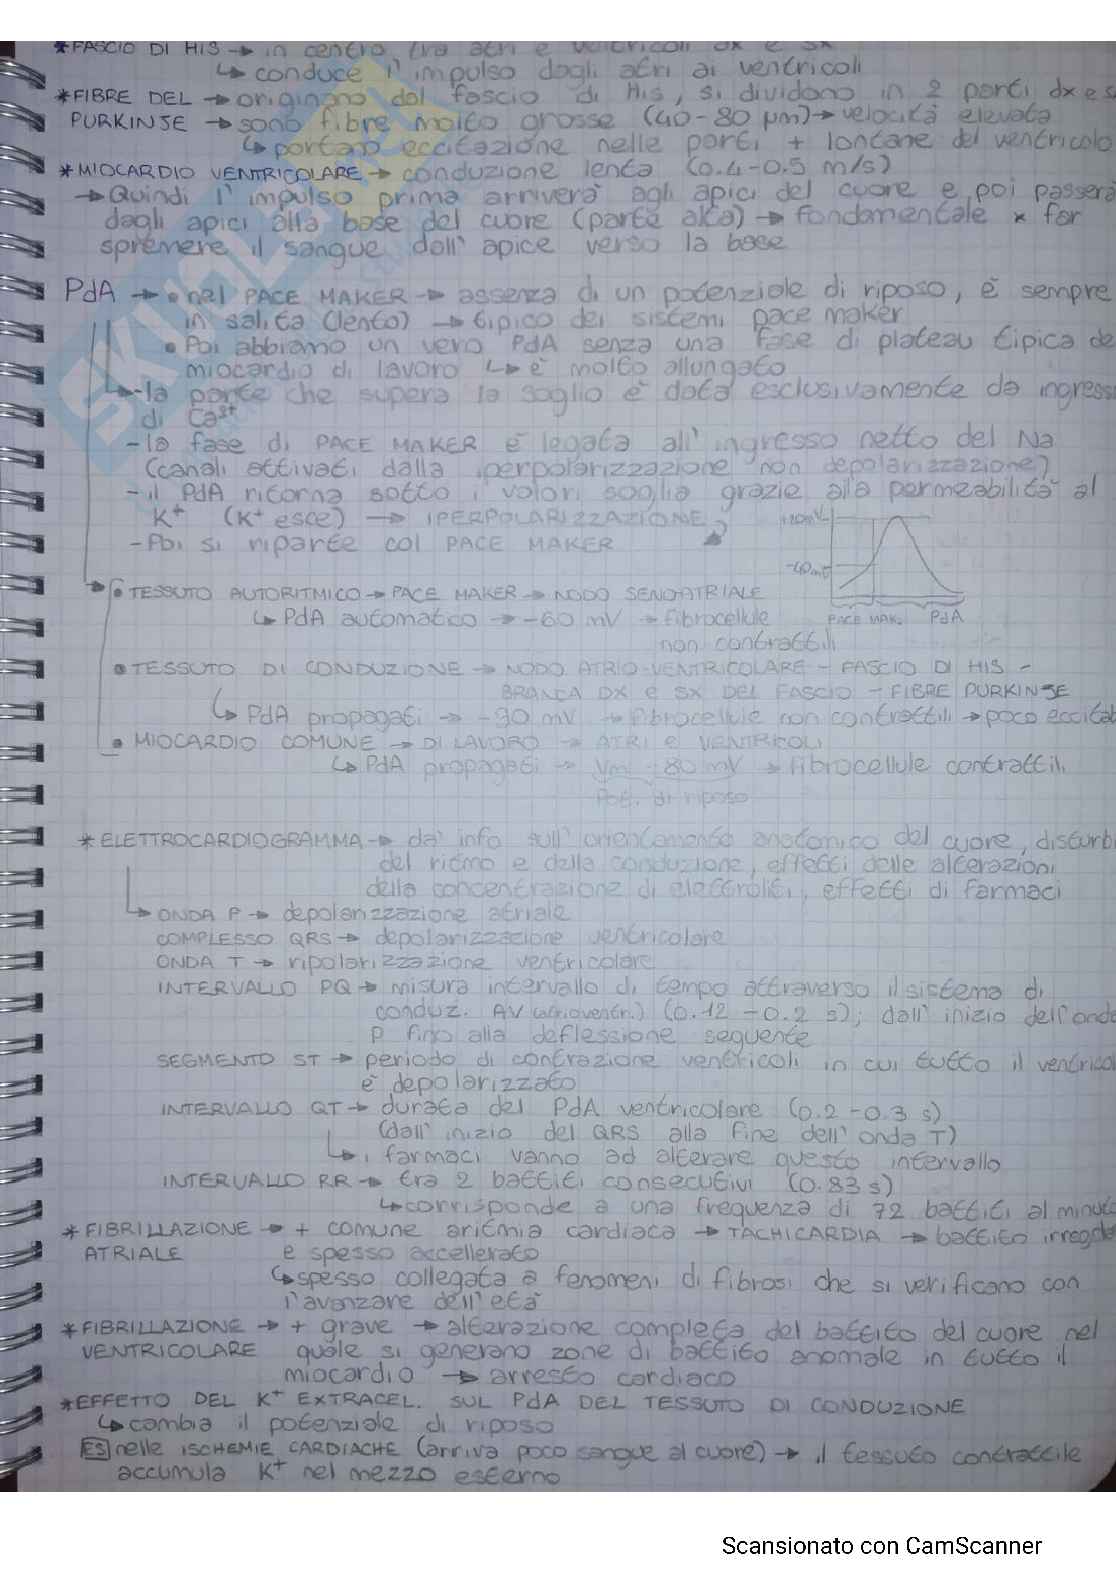 *FASCIO DI HIS → in centro tra atri e ventricoli dx e sx
↳ conduce l'impulso dagli atri ai ventricoli
*FIBRE DEL → originano dal fascio di His, si dividono in 2 parti dx e sx
PURKINJE → sono fibre molto grosse (40-80 μm) → velocità elevata
↳ portano eccitazione nelle parti + lontane del ventricolo
*MIOCARDIO VENTRICOLARE → conduzione lenta (0.4-0.5 m/s)
→ Quindi l'impulso prima arriverà agli apici del cuore e poi passerà
dagli apici alla base del cuore (parte alta) → fondamentale x far
spremere il sangue dall'apice verso la base
PdA → • nel PACE MAKER → assenza di un potenziale di riposo, è sempre
in salita (lento) → tipico dei sistemi pace maker
• Poi abbiamo un vero PdA senza una fase di plateau tipica de
miocardio di lavoro ↳ è molto allungato
- la parte che supera la soglia è data esclusivamente da ingresso
di Ca²⁺
- la fase di PACE MAKER è legata all'ingresso netto del Na
(canali attivati dalla iperpolarizzazione non depolarizzazione)
- il PdA ritorna sotto i valori soglia grazie alla permeabilità al
K⁺ (K⁺ esce) → IPERPOLARIZZAZIONE
- Poi si riparte col PACE MAKER
+20mV
-40mV
PACE MAK. PdA
• TESSUTO AUTORITMICO → PACE MAKER → NODO SENOATRIALE
↳ PdA automatico → -60 mV → fibrocellule
non contrattili
• TESSUTO DI CONDUZIONE → NODO ATRIO-VENTRICOLARE - FASCIO DI HIS -
BRANCA DX e SX DEL FASCIO - FIBRE PURKINJE
↳ PdA propagati → -90 mV → fibrocellule non contrattili → poco eccitab
• MIOCARDIO COMUNE → DI LAVORO → ATRI e VENTRICOLI
↳ PdA propagati → Vm -80 mV → fibrocellule contrattili
Pot. di riposo
*ELETTROCARDIOGRAMMA → dà info sull'orientamento anatomico del cuore, disturbi
del ritmo e della conduzione, effetti delle alterazioni
della concentrazione di elettroliti, effetti di farmaci
↳ ONDA P → depolarizzazione atriale
COMPLESSO QRS → depolarizzazione ventricolare
ONDA T → ripolarizzazione ventricolare
INTERVALLO PQ → misura intervallo di tempo attraverso il sistema di
conduz. AV (atrioventr.) (0.12-0.2 s); dall'inizio dell'onda
P fino alla deflessione seguente
SEGMENTO ST → periodo di contrazione ventricoli in cui tutto il ventricol
è depolarizzato
INTERVALLO QT → durata del PdA ventricolare (0.2-0.3 s)
(dall'inizio del QRS alla fine dell'onda T)
↳ i farmaci vanno ad alterare questo intervallo
INTERVALLO RR → tra 2 battiti consecutivi (0.83 s)
↳ corrisponde a una frequenza di 72 battiti al minuto
*FIBRILLAZIONE → + comune aritmia cardiaca → TACHICARDIA → battito irregola
ATRIALE e spesso accellerato
↳ spesso collegata a fenomeni di fibrosi che si verificano con
l'avanzare dell'età
*FIBRILLAZIONE → + grave → alterazione completa del battito del cuore nel
VENTRICOLARE quale si generano zone di battito anomale in tutto il
miocardio → arresto cardiaco
*EFFETTO DEL K⁺ EXTRACEL. SUL PdA DEL TESSUTO DI CONDUZIONE
↳ cambia il potenziale di riposo
ES nelle ISCHEMIE CARDIACHE (arriva poco sangue al cuore) → il tessuto contrattile
accumula K⁺ nel mezzo esterno
Scansionato con CamScanner